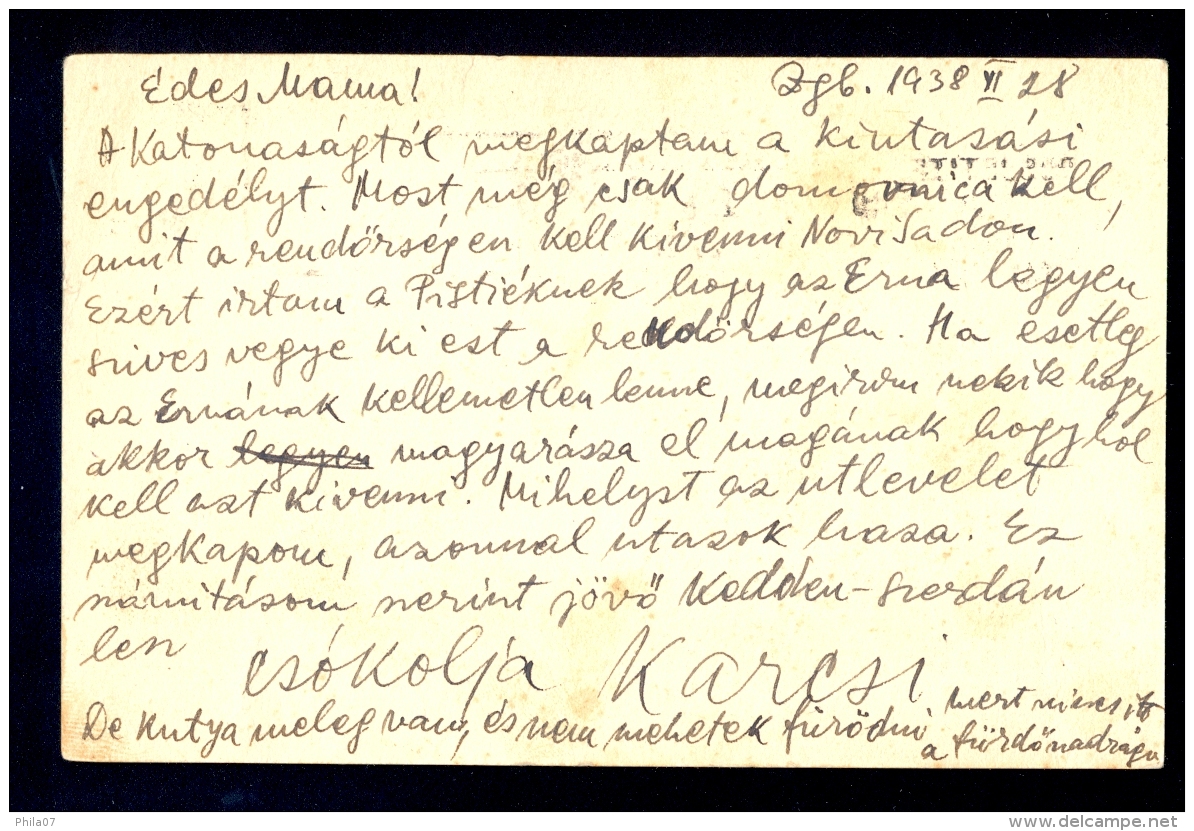 Édes Mama! Zgb. 1938 VI 28
A Katonaságtól megkaptam a kiutasási
engedélyt. Most még csak domovnica kell,
amit a rendőrségen kell kivenni Novisadon.
Ezért irtam a Pistiéknek hogy az Erna legyen
szives vegye ki est a rendőrségen. Ha esetleg
az Ernának kellemetlen lenne, megirom nekik hogy
akkor legyen magyarásza el magának hogy hol
kell azt kivenni. Mihelyst az utlevelet
megkapom, azonnal utazok haza. Ez
számitásom szerint jövő kedden-szerdán
lesz
Csókolja Karcsi
De kutya meleg van, és nem mehetek fürödni mert nincs itt
a fürdőnadrágom
Phila07
delcampe.net